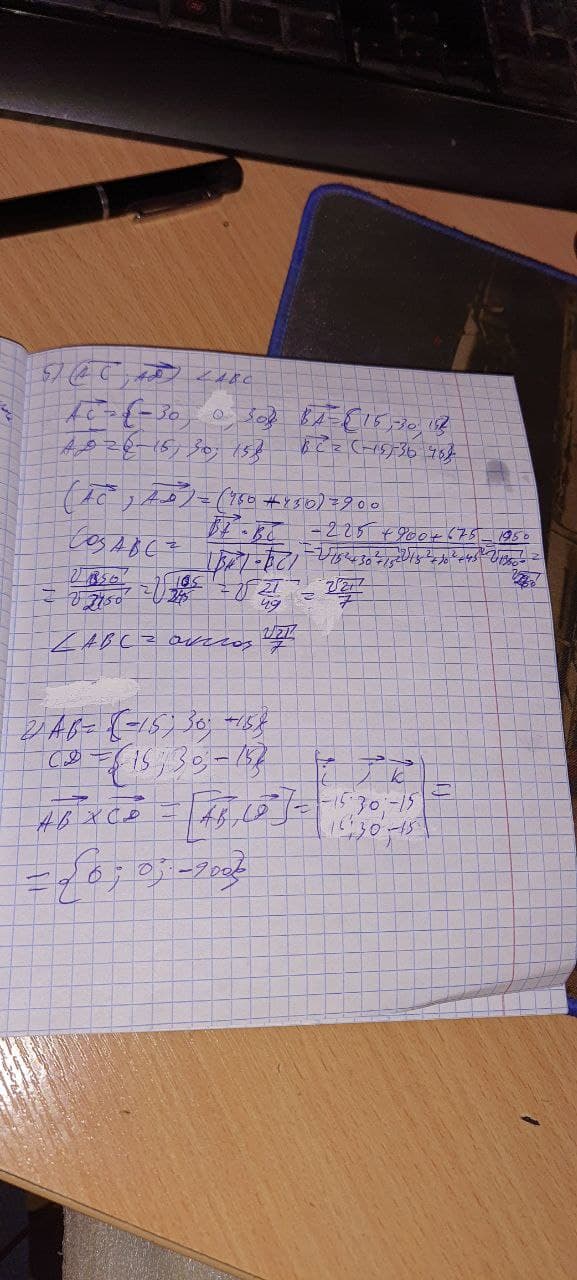 б) (AC, AD) ∠ABC
AC = {-30, 0, 30} BA = {15, -30, 15}
AD = {-15; 30; 15} BC = (-15; -30; 45}
(AC; AD) = (450 + 450) = 900
Cos ABC = BA · BC / |BA| · |BC| = -225 + 900 + 675 / √15²+30²+15² √15²+30²+45² = 1350
= √ = √ = √21/49 = √21/7
∠ABC = arccos √21/7
2) AB = {-15; 30; -15}
CD = {15; 30; -15}
AB × CD = [AB, CD] = | i j k | =
-15; 30; -15
15; 30; -15
= {0; 0; -900}